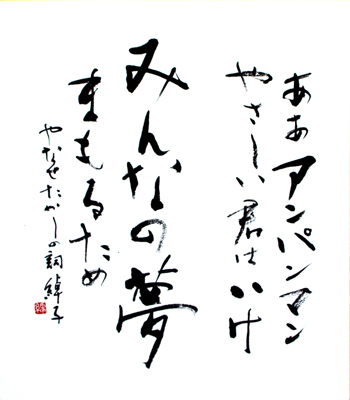 ああアンパンマン
やさしい君はいけ
みんなの夢
まもるため
やなせたかしの詞 綽子